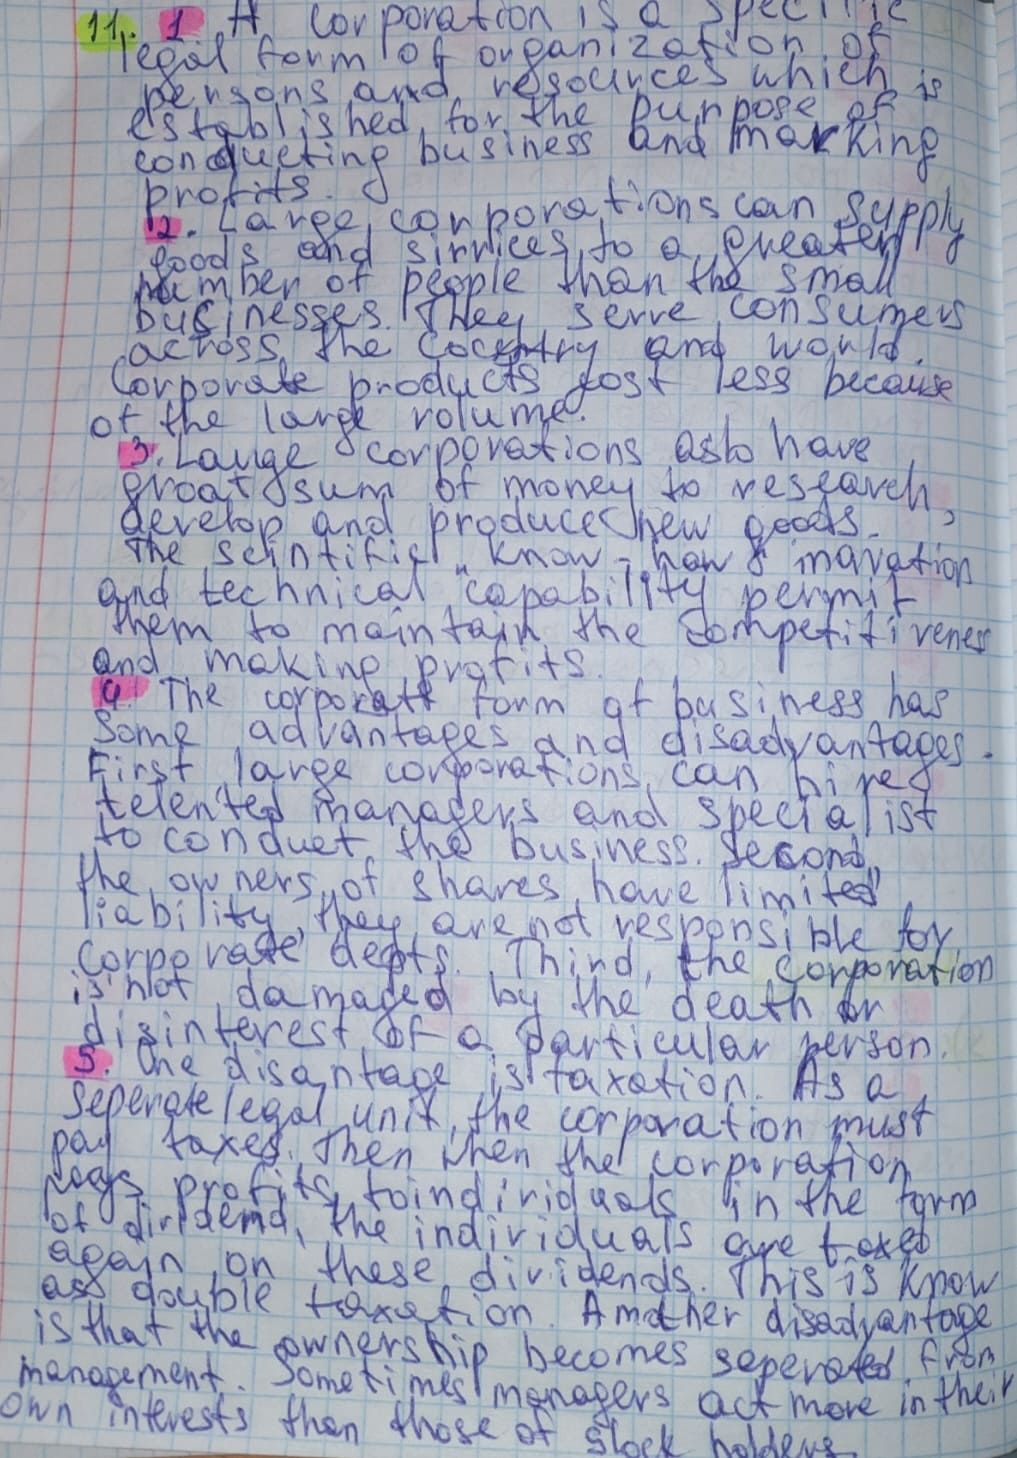 11. 1 A corporation is a specific
legal form of organization of
persons and resources which is
established for the purpose of
conducting business and making
profits.
2. Large corporations can supply
goods and sirvices to a greater
number of people than the small
businesses. They serve consumers
across the country and world.
Corporate products cost less because
of the large volume.
3. Lauge corporations aslo have
groat sum of money to research,
develop and produce new goods.
The scintific "know-how"
and technical capability permit
them to maintain the competitiveness
and making profits.
4. The corporate form of business has
some advantages and disadvantages.
First large corporations can hire
telented managers and specialist
to conduct the business. Second,
the owners of shares have limited
liability, they are not responsible for
corporate depts. Third, the corporation
is not damaged by the death or
disinterest of a particular person.
5. One disantage is taxation. As a
seperate legal unit, the corporation must
pay taxes. Then when the corporation
pays profits toindividuals in the form
of dividend, the individuals are taxed
again on these dividends. This is know
as double taxation. Another disadvantage
is that the ownership becomes seperated from
management. Sometimes managers act more in their
own interests than those of stock holders